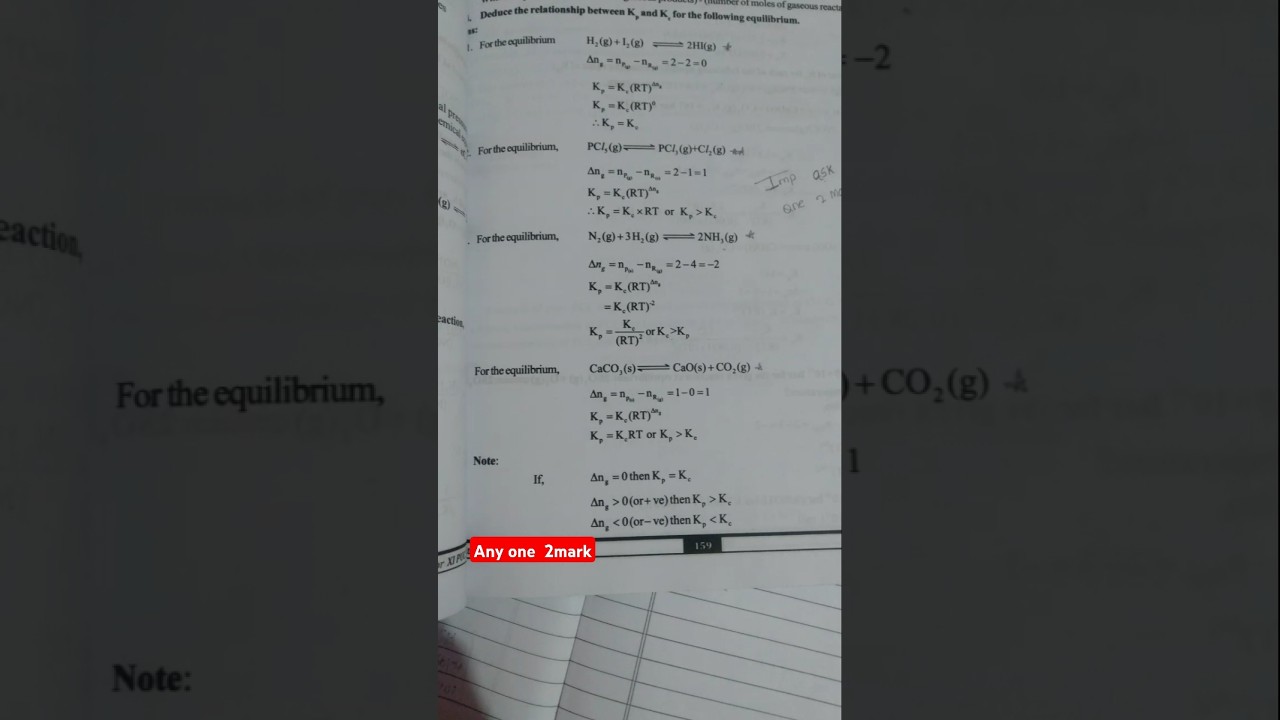 (number of moles of gaseous reacta
Deduce the relationship between Kₚ and K꜀ for the following equilibrium.
1. For the equilibrium H₂(g)+I₂(g) ⇌ 2HI(g)
Δn_g = n_P(g) − n_R(g) = 2−2=0
Kₚ = K꜀(RT)^Δn_g
Kₚ = K꜀(RT)⁰
∴ Kₚ = K꜀
For the equilibrium, PCl₅(g) ⇌ PCl₃(g)+Cl₂(g)
Δn_g = n_P(g) − n_R(g) = 2−1=1
Kₚ = K꜀(RT)^Δn_g
∴ Kₚ = K꜀ × RT or Kₚ > K꜀
Imp ask
one 2 m
For the equilibrium, N₂(g)+3H₂(g) ⇌ 2NH₃(g)
Δn_g = n_P(g) − n_R(g) = 2−4=−2
Kₚ = K꜀(RT)^Δn_g
= K꜀(RT)⁻²
Kₚ = K꜀/(RT)² or K꜀>Kₚ
For the equilibrium, CaCO₃(s) ⇌ CaO(s)+CO₂(g)
Δn_g = n_P(g) − n_R(g) = 1−0=1
Kₚ = K꜀(RT)^Δn_g
Kₚ = K꜀RT or Kₚ > K꜀
Note:
If, Δn_g = 0 then Kₚ = K꜀
Δn_g > 0 (or+ ve) then Kₚ > K꜀
Δn_g < 0 (or− ve) then Kₚ < K꜀
159
Any one 2mark
eaction,
For the equilibrium,
Note:
= −2
) + CO₂(g)
1